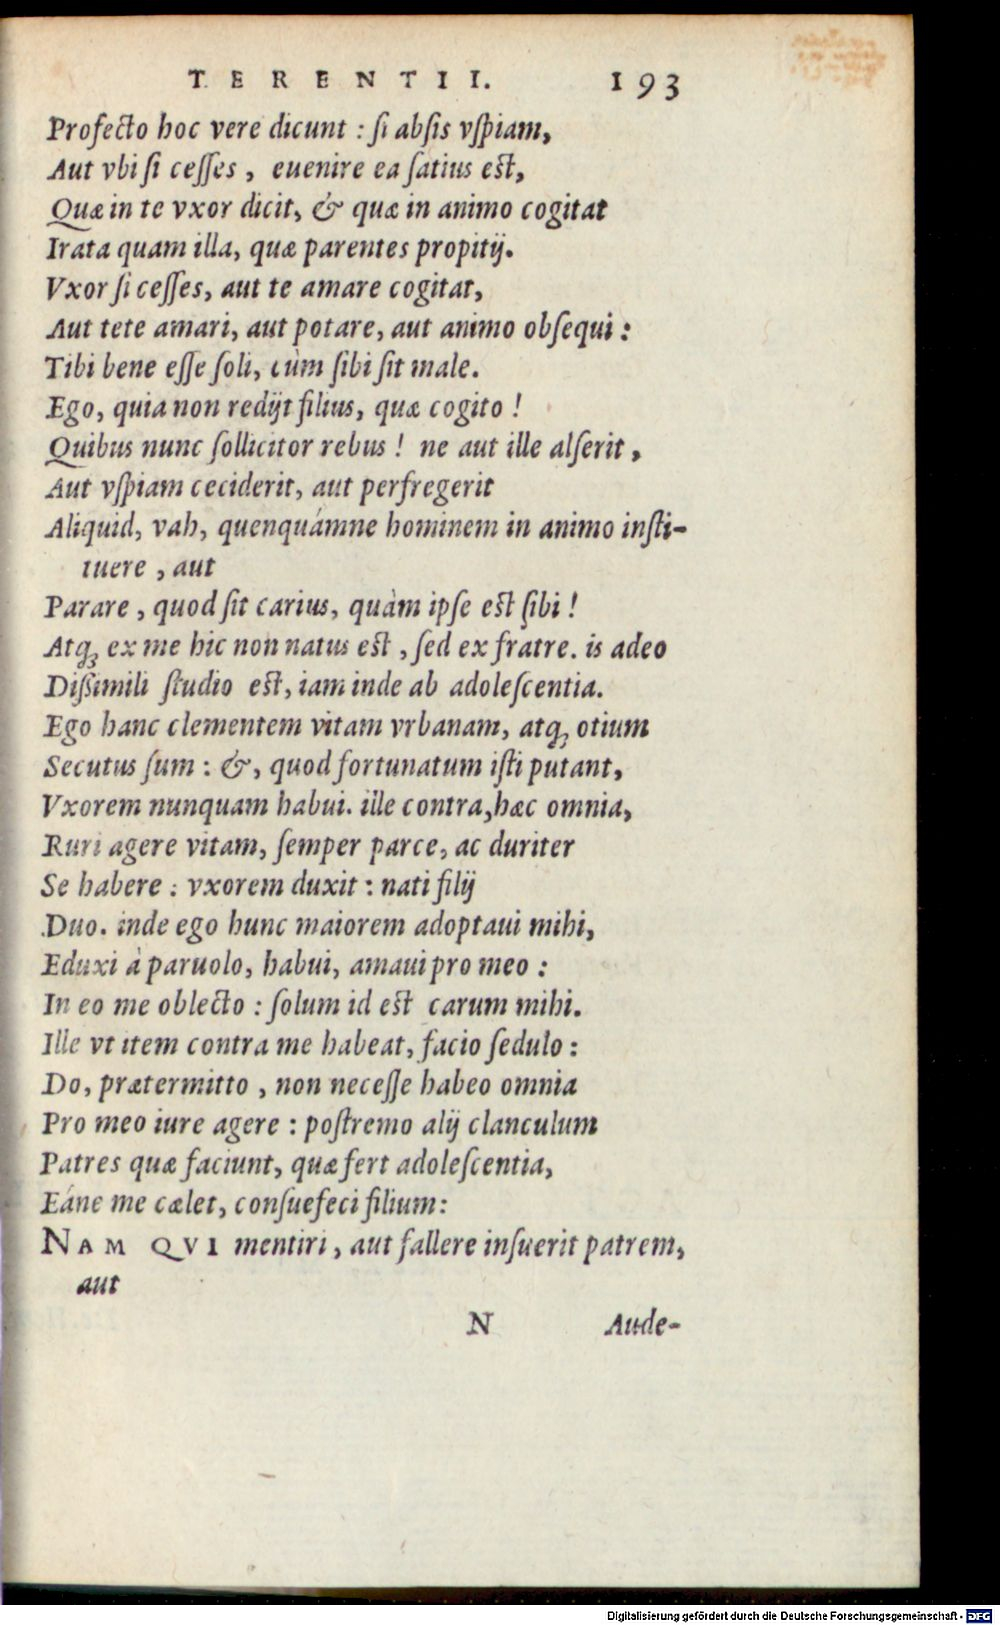 TERENTII. 193
Profecto hoc vere dicunt : ſi abſis vſpiam,
Aut vbi ſi ceſſes , euenire ea ſatius eſt,
Quæ in te vxor dicit, & quæ in animo cogitat
Irata quam illa, quæ parentes propitij.
Vxor ſi ceſſes, aut te amare cogitat,
Aut tete amari, aut potare, aut animo obſequi :
Tibi bene eſſe ſoli, cùm ſibi ſit male.
Ego, quia non redijt filius, quæ cogito !
Quibus nunc ſollicitor rebus ! ne aut ille alſerit ,
Aut vſpiam ceciderit, aut perfregerit
Aliquid, vah, quenquámne hominem in animo inſti-
tuere , aut
Parare , quod ſit carius, quàm ipſe eſt ſibi !
Atq₃ ex me hic non natus eſt , ſed ex fratre. is adeo
Diſſimili ſtudio eſt, iam inde ab adoleſcentia.
Ego hanc clementem vitam vrbanam, atq₃ otium
Secutus ſum : &, quod fortunatum iſti putant,
Vxorem nunquam habui. ille contra,hæc omnia,
Ruri agere vitam, ſemper parce, ac duriter
Se habere : vxorem duxit : nati filij
Duo. inde ego hunc maiorem adoptaui mihi,
Eduxi à paruolo, habui, amaui pro meo :
In eo me oblecto : ſolum id eſt carum mihi.
Ille vt item contra me habeat, facio ſedulo :
Do, prætermitto , non neceſſe habeo omnia
Pro meo iure agere : poſtremo alij clanculum
Patres quæ faciunt, quæ fert adoleſcentia,
Eáne me cælet, conſuefeci filium:
NAM QVI mentiri , aut fallere inſuerit patrem,
aut
N Aude-
Digitalisierung gefördert durch die Deutsche Forschungsgemeinschaft - DFG